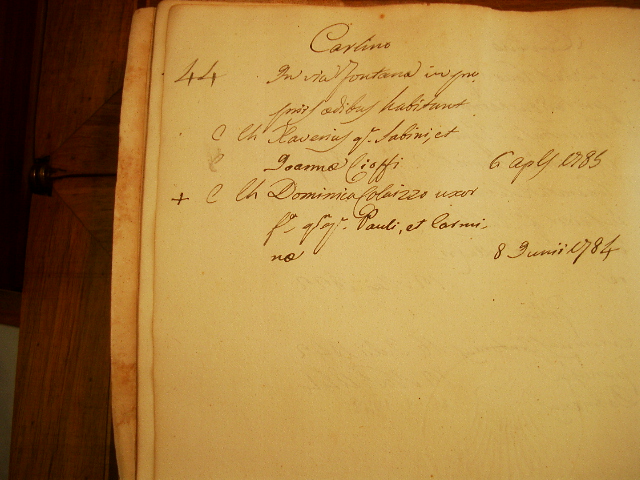 Carlino
44 In via Fontana in pro
prijs ædibus habitant
C Ch Xaverius q.m Sabini, et
C Joannæ Cioffi 6 aplis 1785
+ C Ch Dominica Colaizzo uxor
f.a q.m q.m Pauli, et Carmi-
næ 8 Junii 1784